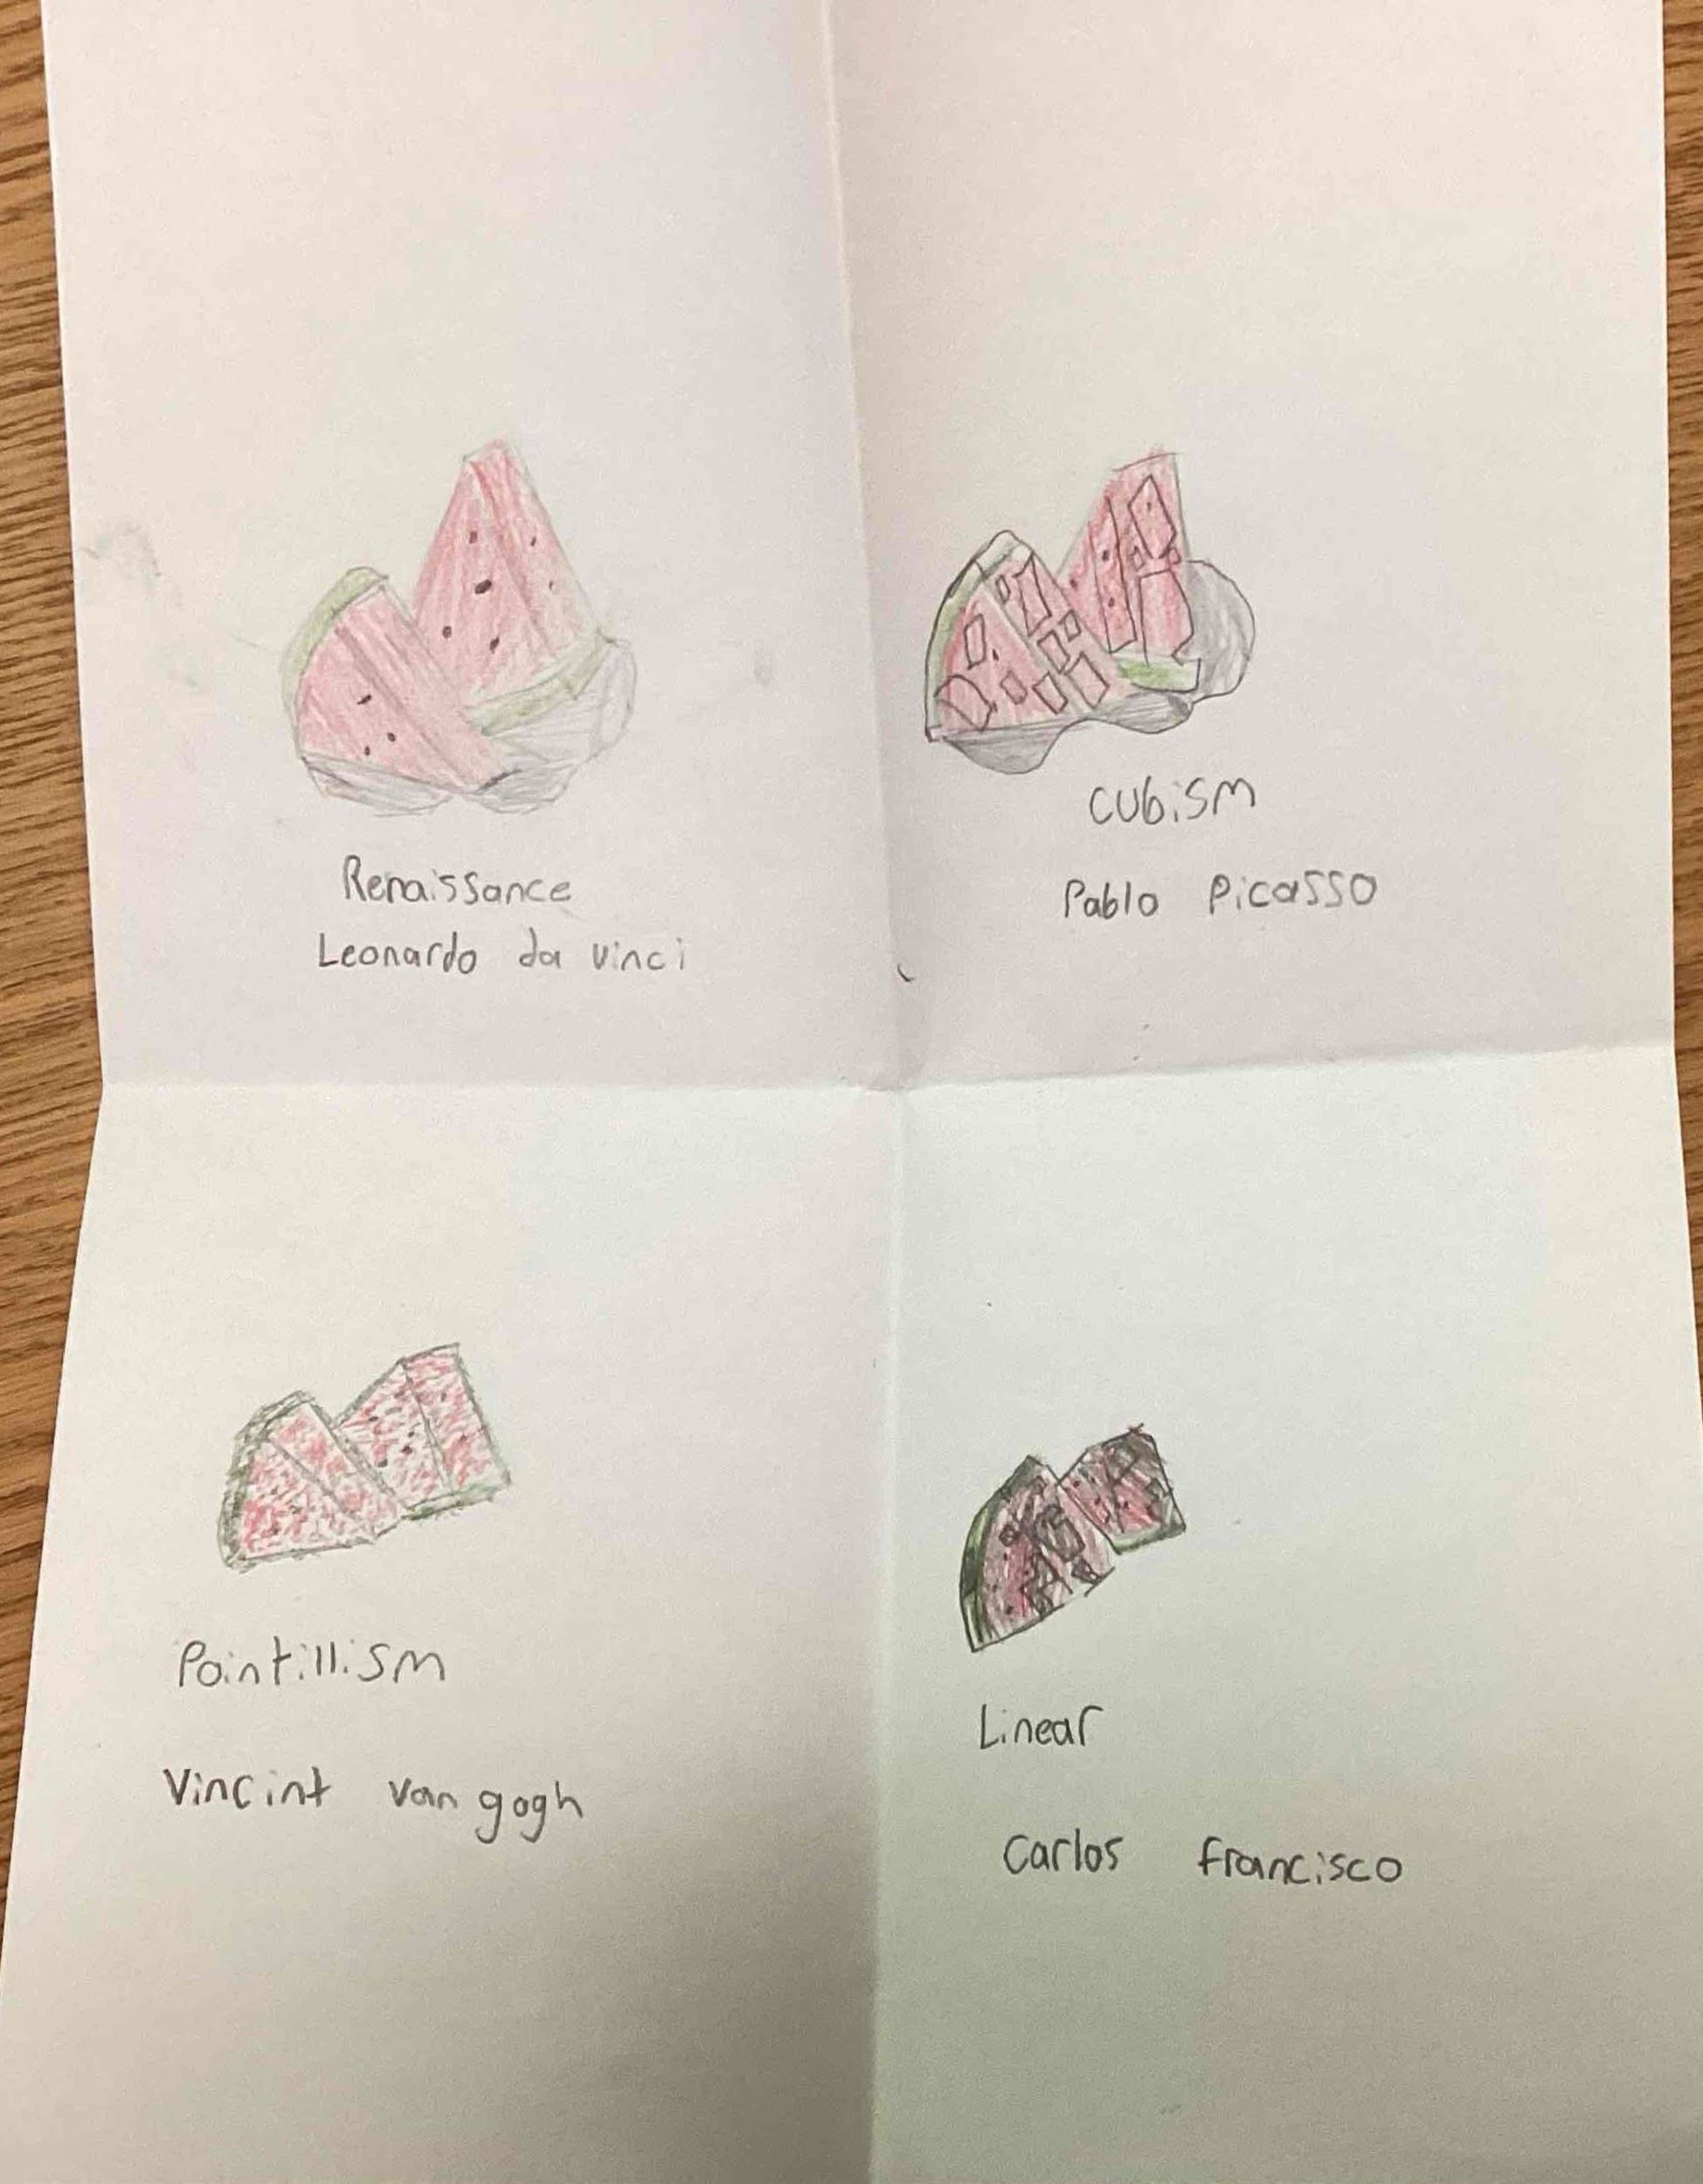 Renaissance
Leonardo da vinci
cubism
Pablo Picasso
Pointillism
Vincint van gogh
Linear
Carlos francisco